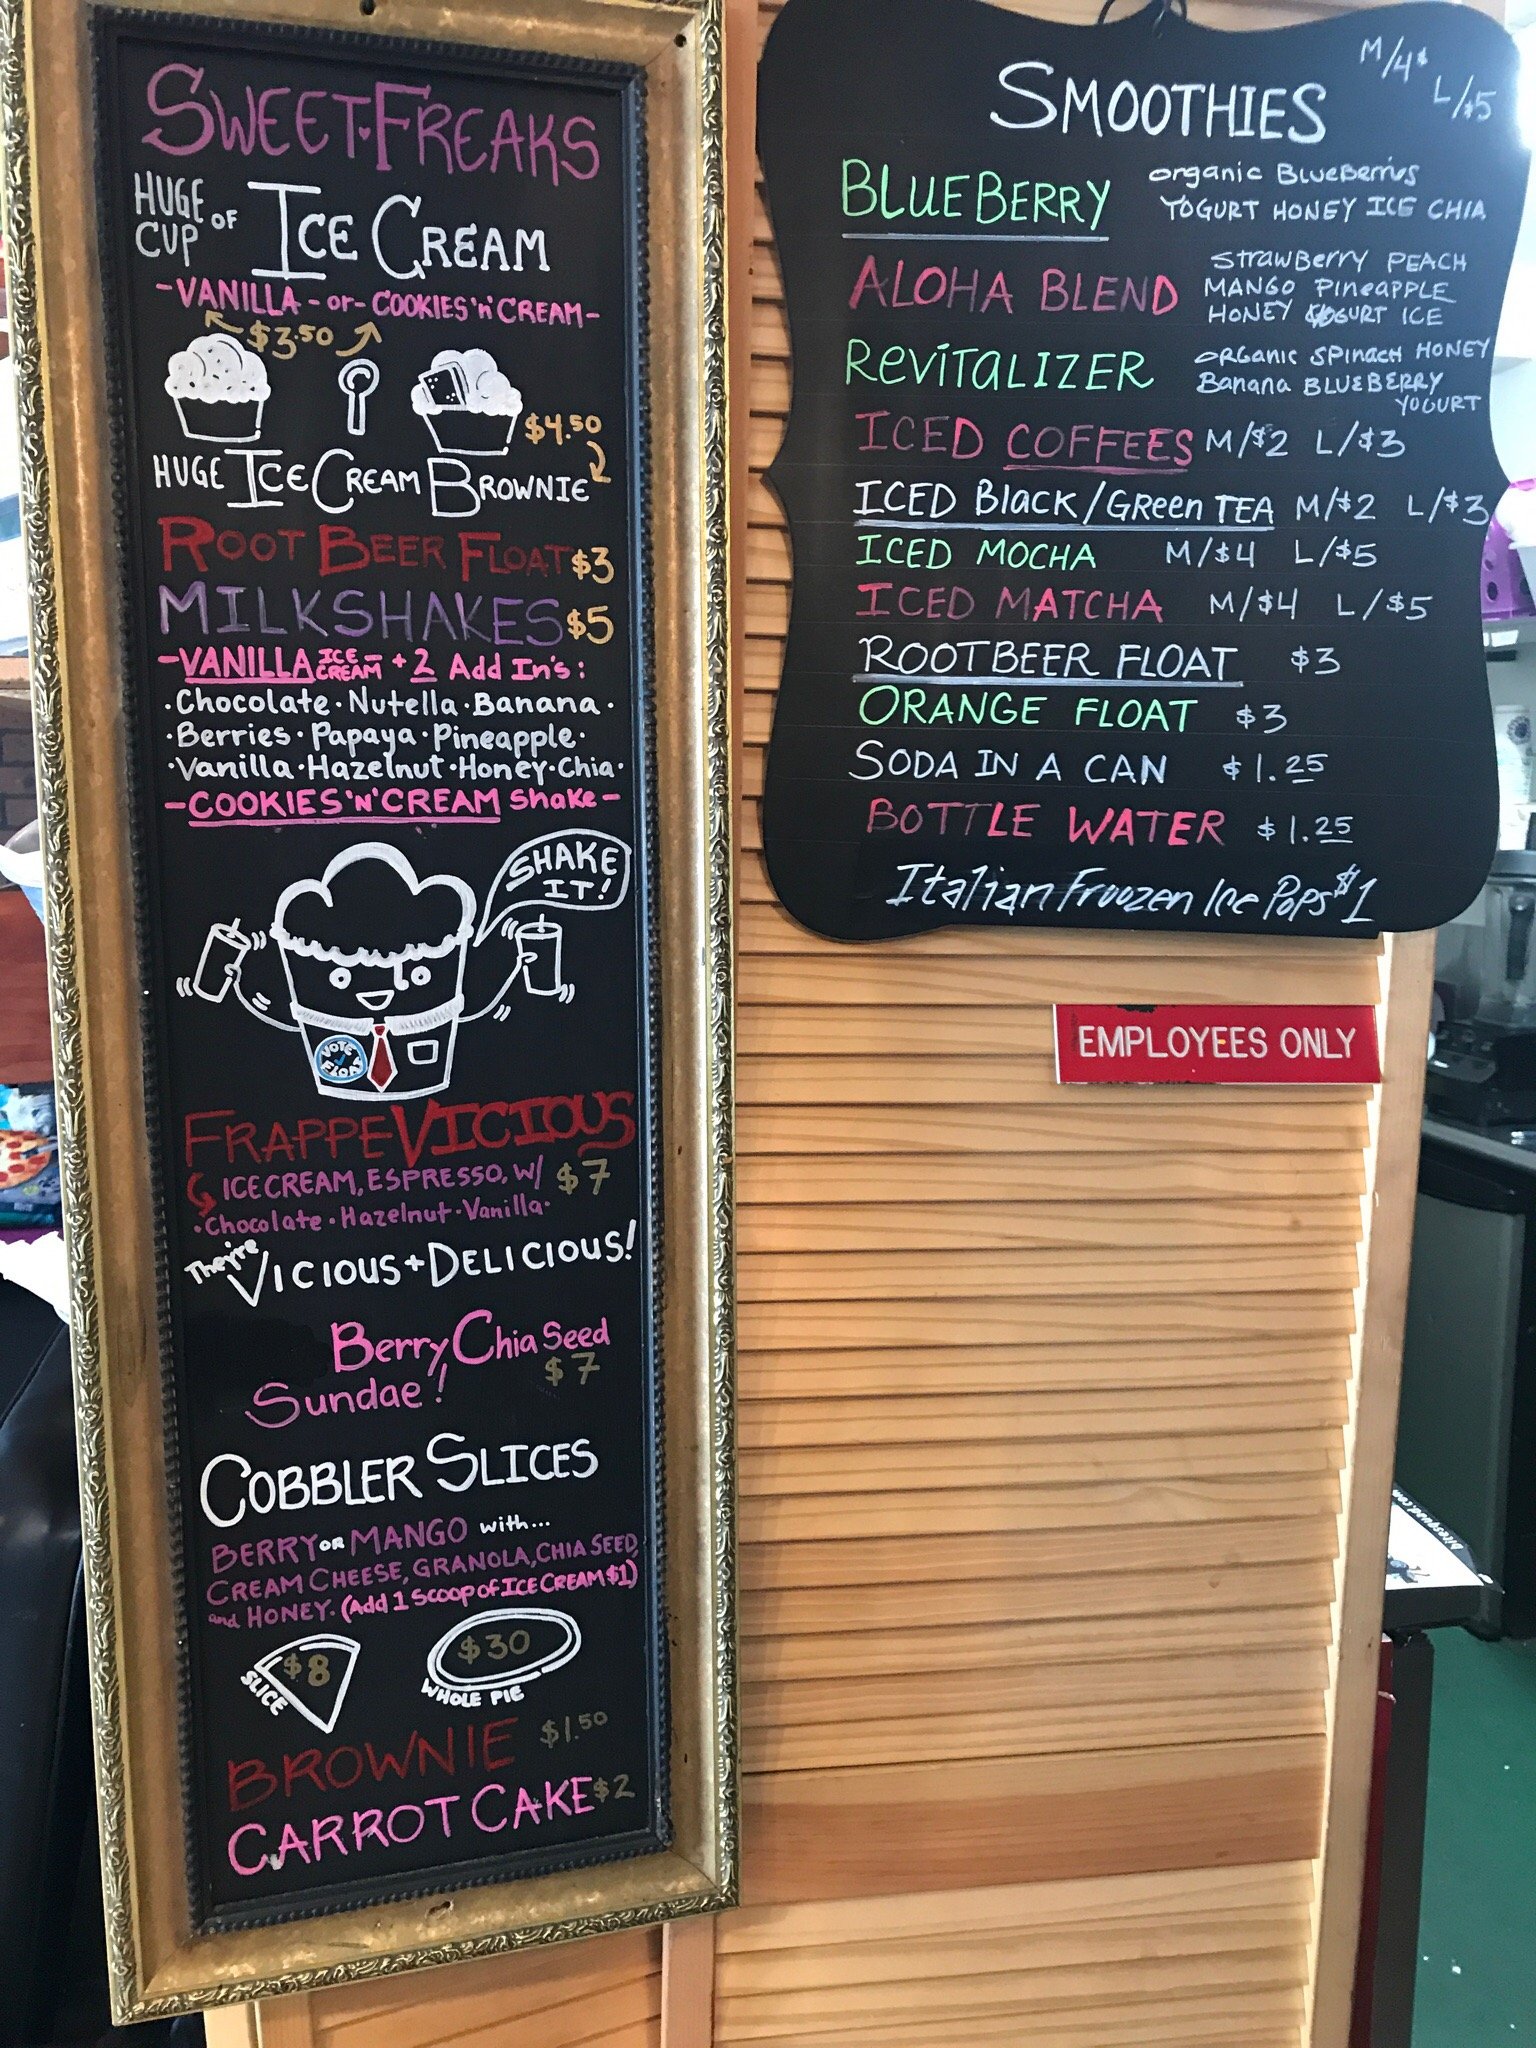 SWEET FREAKS
HUGE CUP OF ICE CREAM
-VANILLA-or-COOKIES'n'CREAM-
$3.50
$4.50
HUGE ICE CREAM BROWNIE
ROOT BEER FLOAT $3
MILKSHAKES $5
-VANILLA ICE CREAM- +2 Add In's:
·Chocolate·Nutella·Banana·
·Berries·Papaya·Pineapple·
·Vanilla·Hazelnut·Honey·Chia·
-COOKIES'N'CREAM Shake-
SHAKE IT!
VOTE FLOAT
FRAPPE VICIOUS
ICE CREAM, ESPRESSO, W/ $7
·Chocolate·Hazelnut·Vanilla·
They're VICIOUS + DELICIOUS!
Berry Chia Seed
$7
Sundae!
COBBLER SLICES
BERRY OR MANGO with...
CREAM CHEESE, GRANOLA, CHIA SEED,
and HONEY. (Add 1 Scoop of ICE CREAM $1)
$8
SLICE
$30
WHOLE PIE
BROWNIE $1.50
CARROT CAKE $2
M/4$
L/$5
SMOOTHIES
BLUEBERRY organic BLUEBerris
YOGURT HONEY ICE CHIA
ALOHA BLEND StrawBerry PEACH
MANGO PineAPPLE
HONEY YOGURT ICE
ReViTALIZER ORGanic SPinacH HONEY
Banana BLUEBERRY
YOGURT
ICED COFFEES M/$2 L/$3
ICED Black/Green TEA M/$2 L/$3
ICED MOCHA M/$4 L/$5
ICED MATCHA M/$4 L/$5
ROOTBEER FLOAT $3
ORANGE FLOAT $3
SODA IN A CAN $1.25
BOTTLE WATER $1.25
Italian Froozen Ice Pops $1
EMPLOYEES ONLY